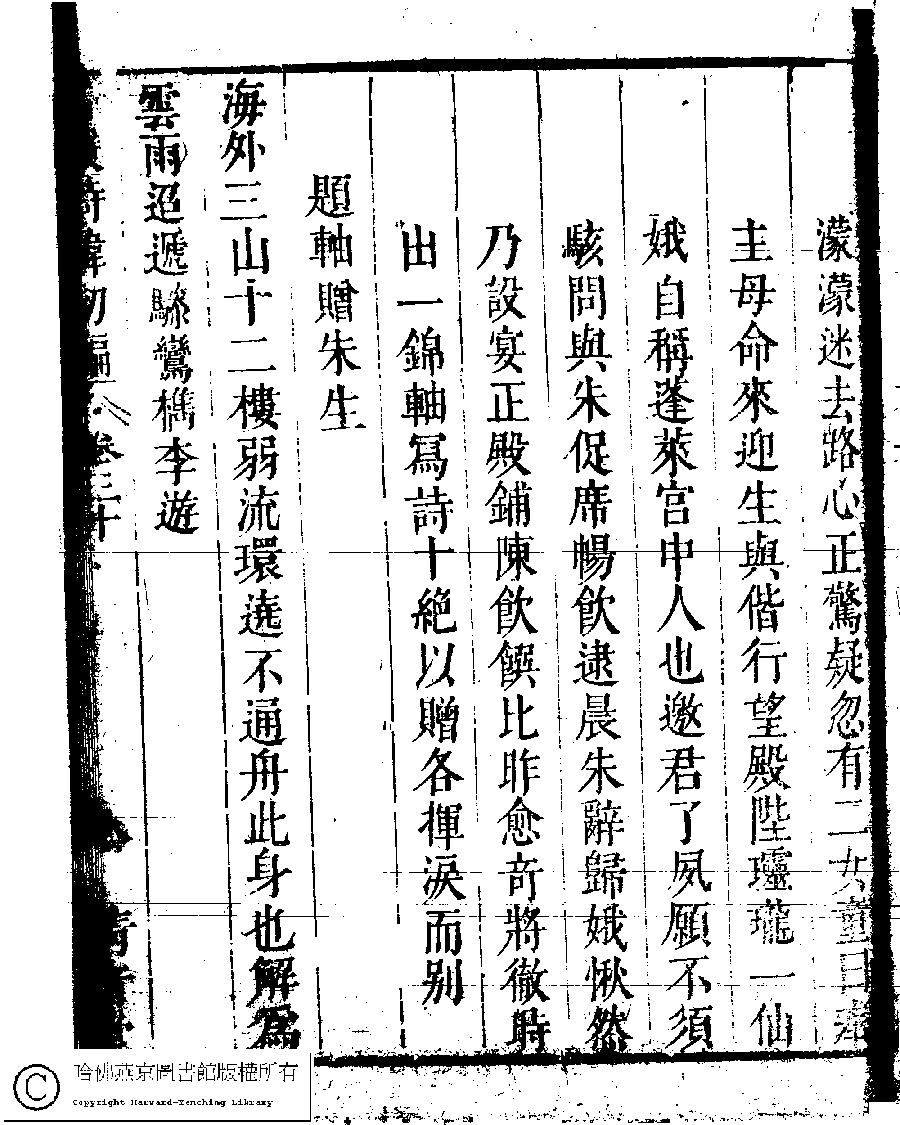 濛濛迷去路心正驚疑忽有二女童曰奉
主母命來迎生與偕行望殿陛瓏瓏一仙
娥自稱蓬萊宮中人也邀君了夙願不須
駭問與朱促席暢飲逮晨朱辭歸娥愀然
乃設宴正殿鋪陳飲饌比昨愈奇將徹時
出一錦軸寫詩十絶以贈各揮淚而別
題軸贈朱生
海外三山十二樓弱流環遶不通舟此身也解爲
雲雨迢遞驂鸞檇李遊
詩緯初編 卷三十
哈佛燕京圖書館版權所有
Copyright Harvard-Yenching Library